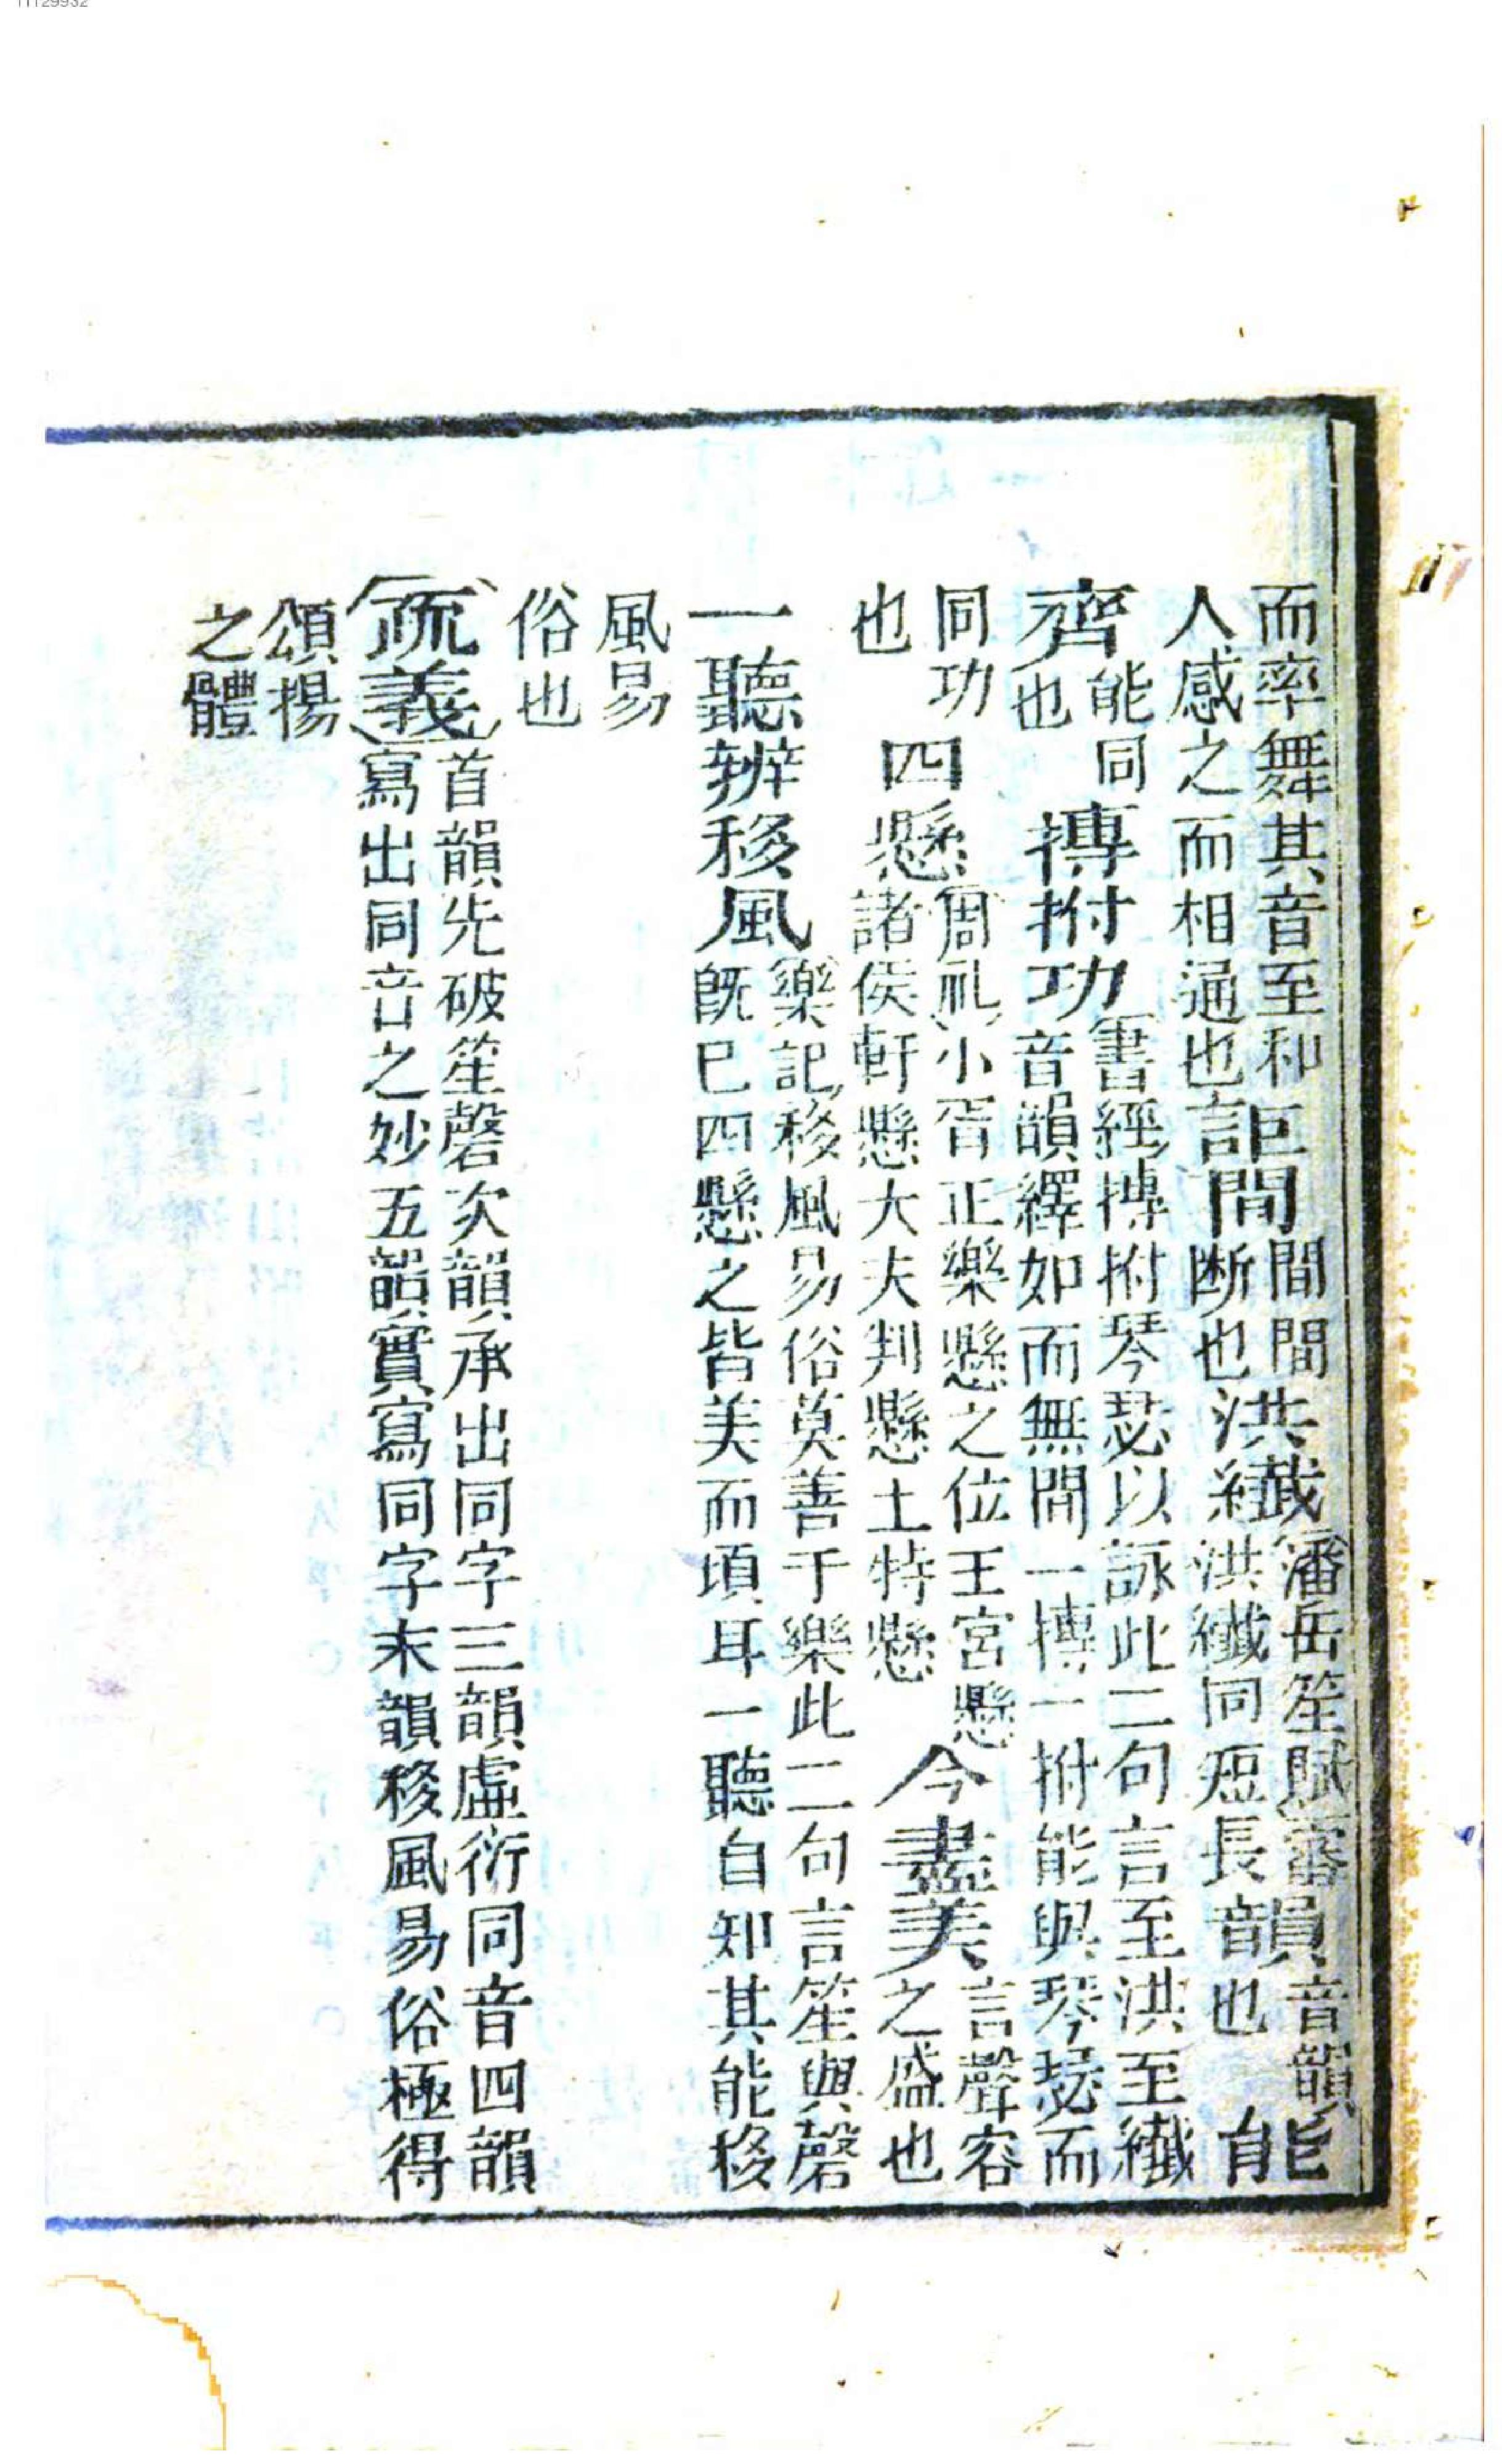 而率舞其音至和人感之而相通也詎間間間断也洪纎潘岳笙賦審洪纖同短長韻音韻也能
齊能同也搏拊功書經搏拊琴瑟以詠此二句言至洪至纖音韻繹如而無間一搏一拊能與琴瑟而
同功也四懸周礼小胥正樂懸之位王宮懸諸侯軒懸大夫判懸土特懸今盡美言聲容之盛也
一聽辨移風樂記移風易俗莫善于樂此二句言笙與磬既已四懸之皆美而頃耳一聽自知其能移
風易俗也
疏義首韻先破笙磬次韻承出同字三韻虛衍同音四韻寫出同音之妙五韻實寫同字末韻移風易俗極得
頌揚之體